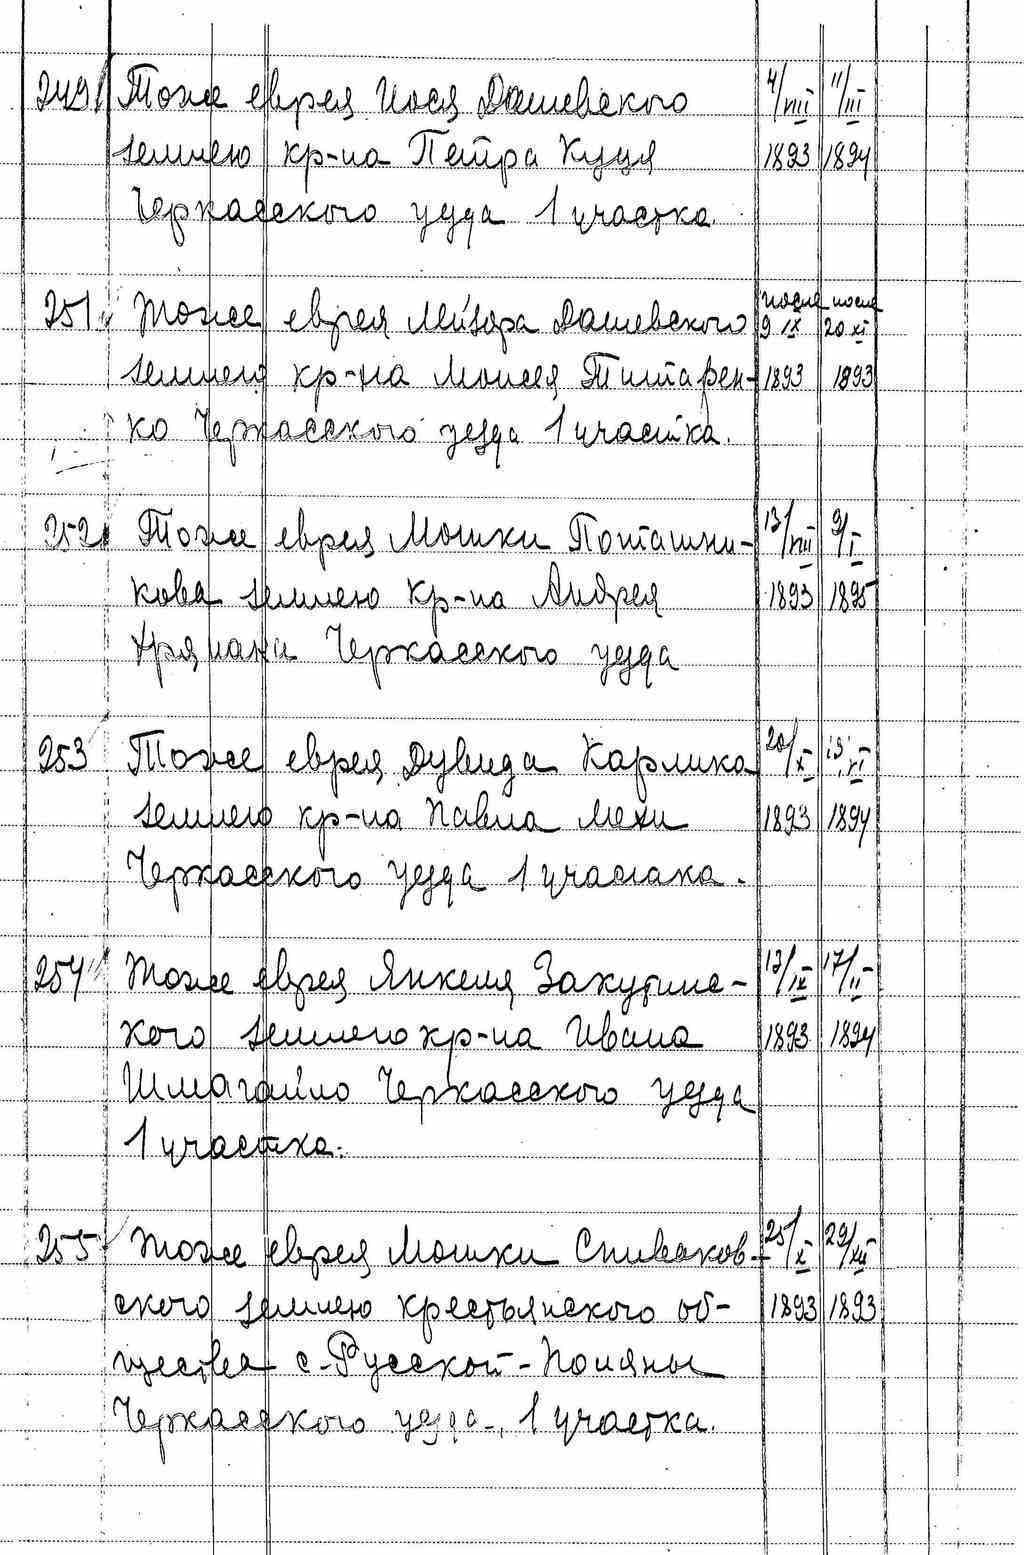 249 Тоже еврея Иося Дашевского 4/VIII 11/III
землею кр-на Петра Куця 1893 1894
Черкасского уезда 1 участка.
251 Тоже еврея Лейзора Дашевского после 9 IX после 20 XI
землею кр-на Моисея Титарен- 1893 1893
ко Черкасского уезда 1 участка.
252 Тоже еврея Мошки Поташни- 13/VIII 9/I
кова землею кр-на Андрея 1893 1895
Черкасского уезда
253 Тоже еврея Дувида Карлика 20/X
землею кр-на Павла Мехи 1893 1894
Черкасского уезда 1 участка.
254 Тоже еврея Янкеля Закутинс- 13/IX 17/II
кого землею кр-на Ивана 1893 1894
Шмагайло Черкасского уезда
1 участка.
255 Тоже еврея Мошки Спиваков- 25/X 29/XII
ского землею крестьянского об- 1893 1893
щества с-Русской-Поляны
Черкасского уезда., 1 участка.